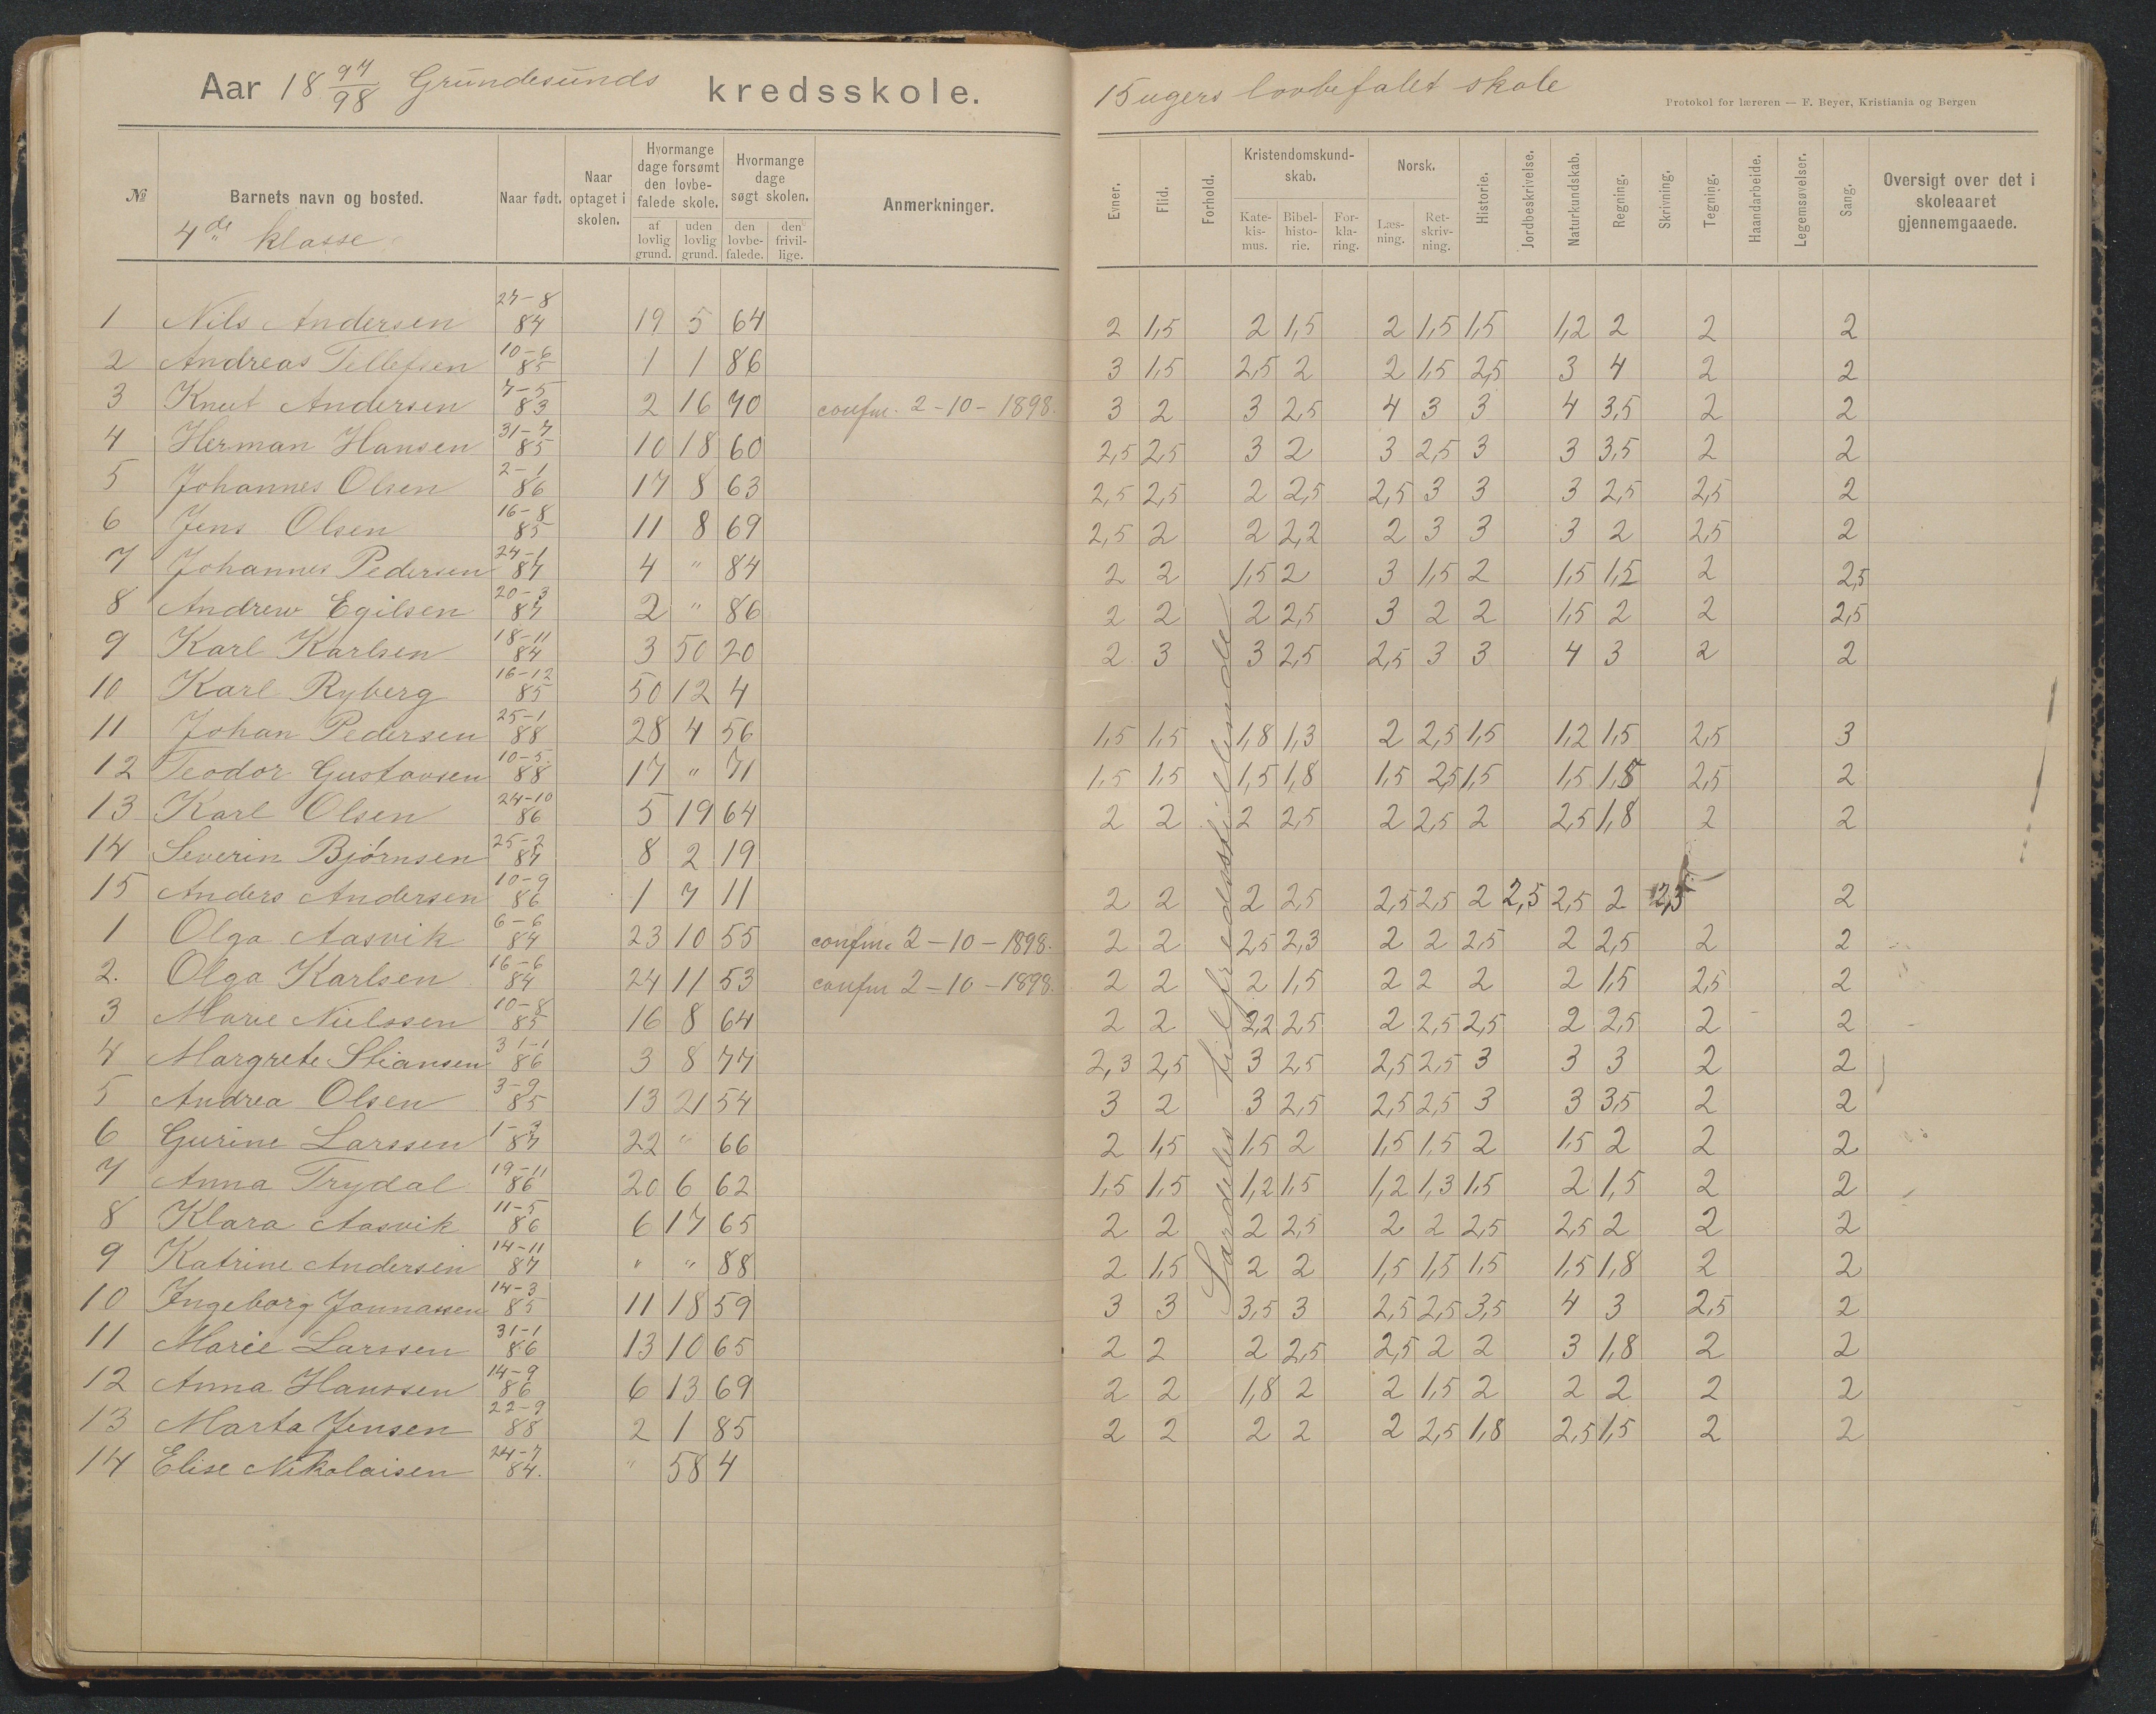 Aar 18 97/98 Grundesunds kredsskole.
15 ugers lovbefalet skole
Protokol for læreren — F. Beyer, Kristiania og Bergen
№ Barnets navn og bosted. Naar født. Naar optaget i skolen. Hvormange dage forsømt den lovbefalede skole. af lovlig grund. uden lovlig grund. Hvormange dage søgt skolen. den lovbefalede. den frivillige. Anmerkninger.
Evner. Flid. Forhold. Kristendomskundskab. Katekismus. Bibelhistorie. Forklaring. Norsk. Læsning. Retskrivning. Historie. Jordbeskrivelse. Naturkundskab. Regning. Skrivning. Tegning. Haandarbeide. Legemsøvelser. Sang. Oversigt over det i skoleaaret gjennemgaaede.
4de klasse
Særdeles tilfredsstillende
1 Nils Andersen 27-8 84 19 5 64 2 1,5 2 1,5 2 1,5 1,5 1,2 2 2 2
2 Andreas Tellefsen 10-6 85 1 1 86 3 1,5 2,5 2 2 1,5 2,5 3 4 2 2
3 Knut Andersen 7-5 83 2 16 70 confm. 2-10-1898. 3 2 3 2,5 4 3 3 4 3,5 2 2
4 Herman Hansen 31-7 85 10 18 60 2,5 2,5 3 2 3 2,5 3 3 3,5 2 2
5 Johannes Olsen 2-1 86 17 8 63 2,5 2,5 2 2,5 2,5 3 3 3 2,5 2,5 2
6 Jens Olsen 16-8 85 11 8 69 2,5 2 2 2,2 2 3 3 3 2 2,5 2
7 Johannes Pedersen 24-1 87 4 " 84 2 2 1,5 2 3 1,5 2 1,5 1,5 2 2,5
8 Andrew Egilsen 20-3 87 2 " 86 2 2 2 2,5 3 2 2 1,5 2 2 2,5
9 Karl Karlsen 18-11 84 3 50 20 2 3 3 2,5 2,5 3 3 4 3 2 2
10 Karl Ryberg 16-12 85 50 12 4
11 Johan Pedersen 25-1 88 28 4 56 1,5 1,5 1,8 1,3 2 2,5 1,5 1,2 1,5 2,5 3
12 Teodor Gustavsen 10-5. 88 17 " 71 1,5 1,5 1,5 1,8 1,5 2,5 1,5 1,5 1,5 2,5 2
13 Karl Olsen 24-10 86 5 19 64 2 2 2 2,5 2 2,5 2 2,5 1,8 2 2
14 Severin Bjørnsen 25-2 87 8 2 19
15 Anders Andersen 10-9 86 1 7 11 2 2 2 2,5 2,5 2,5 2 2,5 2,5 2 2,5 2
1 Olga Aasvik 6-6 84 23 10 55 confm. 2-10-1898. 2 2 2,5 2,3 2 2 2,5 2 2,5 2 2
2. Olga Karlsen 16-6 84 24 11 53 confm 2-10-1898. 2 2 2 1,5 2 2 2 2 1,5 2,5 2
3 Marie Nielssen 10-8 85 16 8 64 2 2 2,2 2,5 2 2,5 2,5 2 2,5 2 2
4 Margrete Stiansen 31-1 86 3 8 77 2,3 2,5 3 2,5 2,5 2,5 3 3 3 2 2
5 Andrea Olsen 3-9 85 13 21 54 3 2 3 2,5 2,5 2,5 3 3 3,5 2 2
6 Gurine Larssen 1-3 87 22 " 66 2 1,5 1,5 2 1,5 1,5 2 1,5 2 2 2
7 Anna Trydal 19-11 86 20 6 62 1,5 1,5 1,2 1,5 1,2 1,3 1,5 2 1,5 2 2
8 Klara Aasvik 11-5 86 6 17 65 2 2 2 2,5 2 2 2,5 2,5 2 2 2
9 Katrine Andersen 14-11 87 " " 88 2 1,5 2 2 1,5 1,5 1,5 1,5 1,8 2 2
10 Ingeborg Jonnassen 14-3 85 11 18 59 3 3 3,5 3 2,5 2,5 3,5 4 3 2,5 2
11 Marie Larssen 31-1 86 13 10 65 2 2 2 2,5 2,5 2 2 3 1,8 2 2
12 Anna Hanssen 14-9 86 6 13 69 2 2 1,8 2 2 1,5 2 2 2 2 2
13 Marta Jensen 22-9 88 2 1 85 2 2 2 2 2 2,5 1,8 2,5 1,5 2 2
14 Elise Nikolaisen 24-7 84. " 58 4